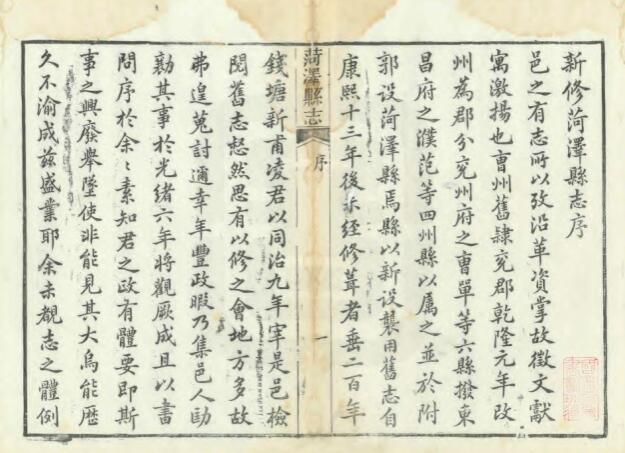 新修菏澤縣志序
邑之有志所以攷沿革資掌故徵文獻
寓激揚也曹州舊隸兖郡乾隆元年改
州為郡分兖州府之曹單等六縣撥東
昌府之濮范等四州縣以属之並於附
郭設菏澤縣焉縣以新設襲用舊志自
康熙十三年後未經修葺者垂二百年
菏澤縣志
序
一
錢塘新甫凌君以同治九年宰是邑檢
閱舊志惄然思有以修之會地方多故
弗遑蒐討邇幸年豐政暇乃集邑人勖
勷其事於光緒六年將觀厥成且以書
問序於余〻素知君之政有體要即斯
事之興廢舉墜使非能見其大烏能歷
久不渝成茲盛業耶余未覩志之體例